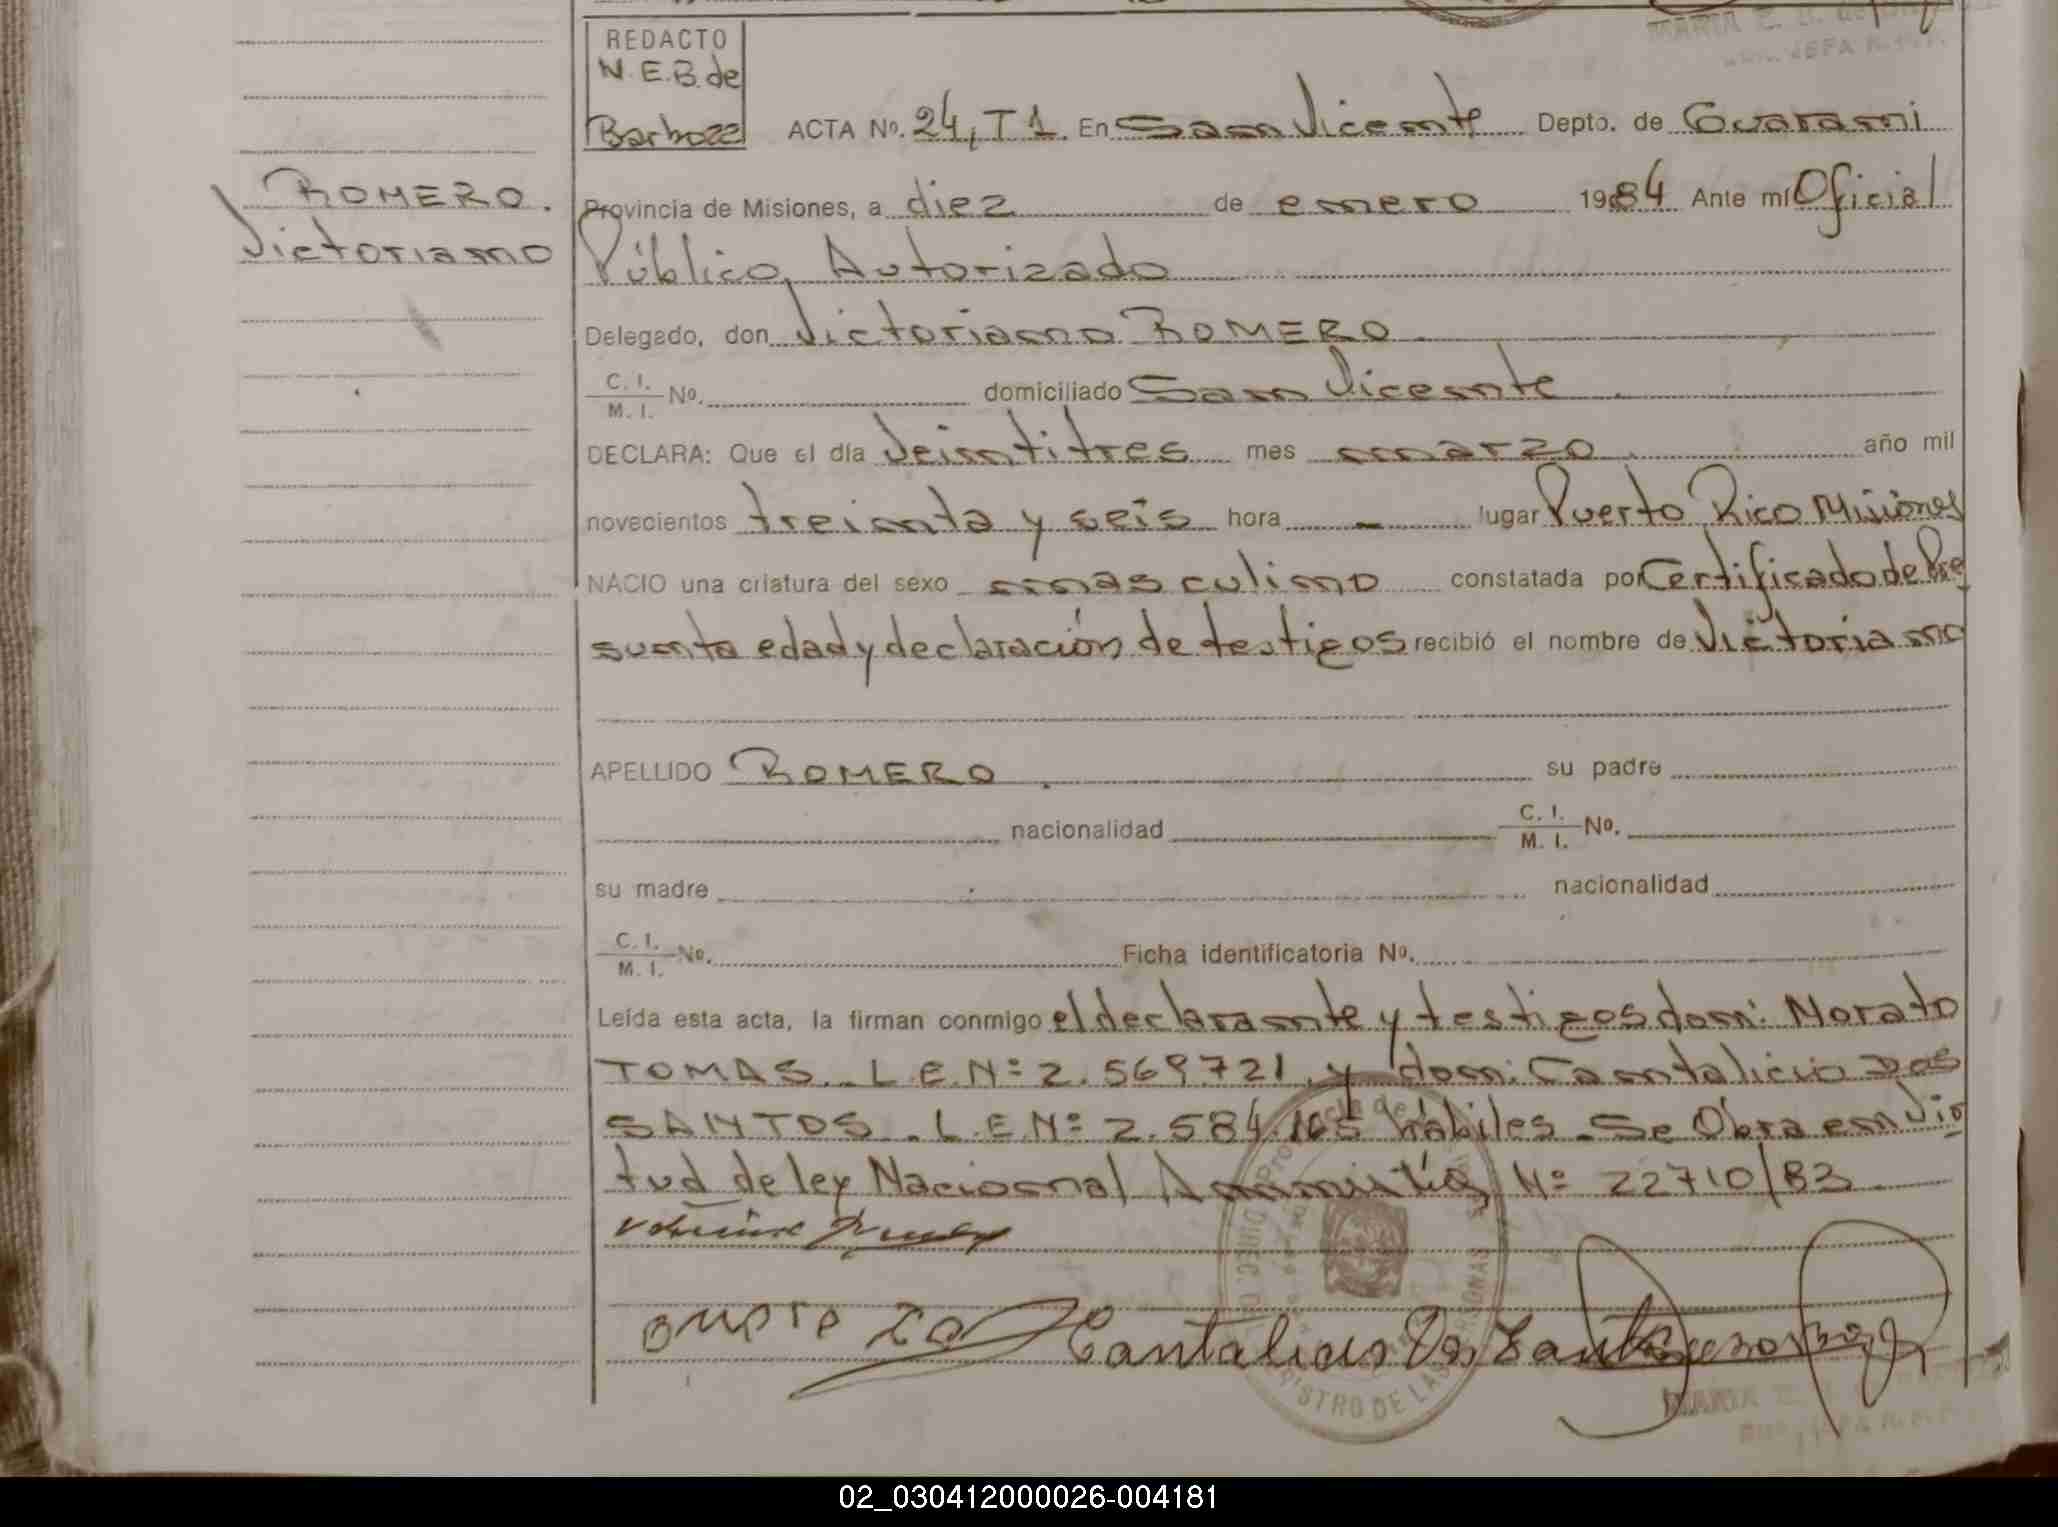 REDACTO
N.E.B. de
Barboza
ACTA No. 24, T1. En San Vicente Depto. de Guarani
ROMERO.
Victoriano
Provincia de Misiones, a diez de enero 1984 Ante mí Oficial
Público Autorizado
Delegado, don Victoriano ROMERO
C. I.
M. I. No. domiciliado San Vicente
DECLARA: Que el día Veintitres mes marzo año mil
novecientos treinta y seis hora - lugar Puerto Rico Misiones
NACIO una criatura del sexo masculino constatada por Certificado de Pre
sunta edad y declaración de testigos recibió el nombre de Victoriano
APELLIDO ROMERO. su padre
nacionalidad C. I.
M. I. No.
su madre nacionalidad
C. I.
M. I. No. Ficha identificatoria No.
Leída esta acta, la firman conmigo el declarante y testigos don: Norato
TOMAS. L.E.Nº 2.569.721 y don: Cantalicio DOS
SANTOS. L.E.Nº 2.584.165 hábiles. Se Obra en Vir
tud de ley Nacional Amnistía Nº 22710/83
Cantalicio Dos Santos
REGISTRO DE LAS PERSONAS
MARIA E.
02_030412000026-004181